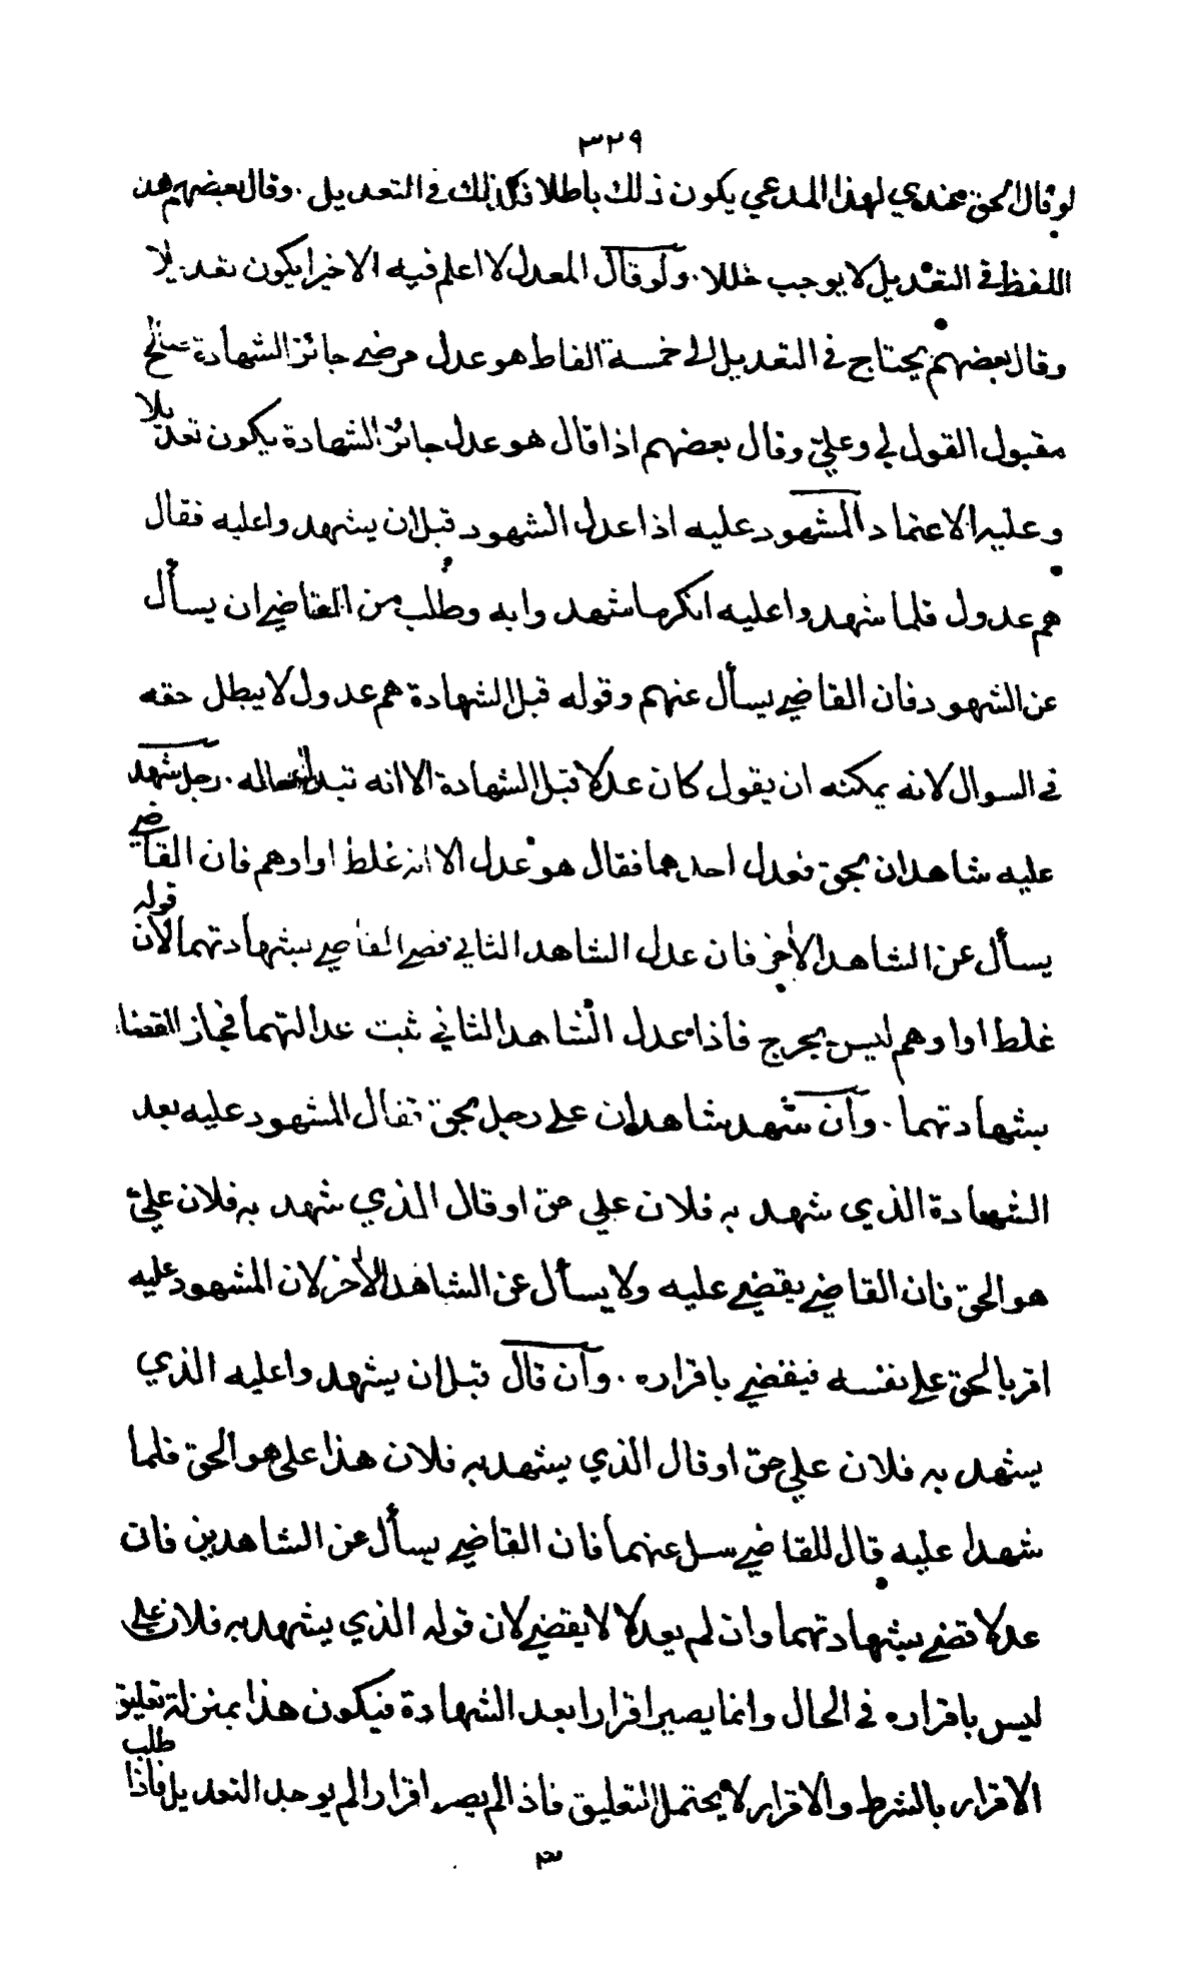 ٣٢٩
لو قال الحق عندي لهذا المدعي يكون ذلك باطلا فكذلك في التعديل . وقال بعضهم هذا
اللفظ في التعديل لا يوجب خللا . ولو قال المعدل لا اعلم فيه الا خيرا يكون تعديلا
وقال بعضهم يحتاج في التعديل الى خمسة الفاظ هو عدل مرضي جائز الشهادة صالح
مقبول القول لي وعلي وقال بعضهم اذا قال هو عدل جائز الشهادة يكون تعديلا
وعليه الاعتماد المشهود عليه اذا عدل الشهود قبل ان يشهدوا عليه فقال
هم عدول فلما شهدوا عليه انكر ما شهدوا به وطلب من القاضي ان يسأل
عن الشهود فان القاضي يسأل عنهم وقوله قبل الشهادة هم عدول لا يبطل حقه
في السوال لانه يمكنه ان يقول كان عدلا قبل الشهادة الا انه تبدل حاله . رجل شهد
عليه شاهدان بحق فعدل احدهما فقال هو عدل الا انه غلط او اوهم فان القاضي
يسأل عن الشاهد الاخر فان عدل الشاهد الثاني قضى القاضي بشهادتهما لان قوله
غلط او اوهم ليس بجرح فاذا عدل الشاهد الثاني ثبت عدالتهما فجاز القضاء
بشهادتهما . وان شهد شاهدان على رجل بحق فقال المشهود عليه بعد
الشهادة الذي شهد به فلان علي حق او قال الذي شهد به فلان علي
هو الحق فان القاضي يقضي عليه ولا يسأل عن الشاهد الاخر لان المشهود عليه
اقر بالحق على نفسه فيقضي باقراره . وان قال قبل ان يشهدوا عليه الذي
يشهد به فلان علي حق او قال الذي يشهد به فلان هذا علي هو الحق فلما
شهدا عليه قال للقاضي سل عنهما فان القاضي يسأل عن الشاهدين فان
عدلا قضى بشهادتهما وان لم يعدلا لا يقضي لان قوله الذي يشهد به فلان علي
ليس باقراره في الحال وانما يصير اقرارا بعد الشهادة فيكون هذا بمنزلة تعليق
الاقرار بالشرط والاقرار لا يحتمل التعليق فاذا لم يصر اقرارا لم يوجد التعديل فاذا طلب
٣